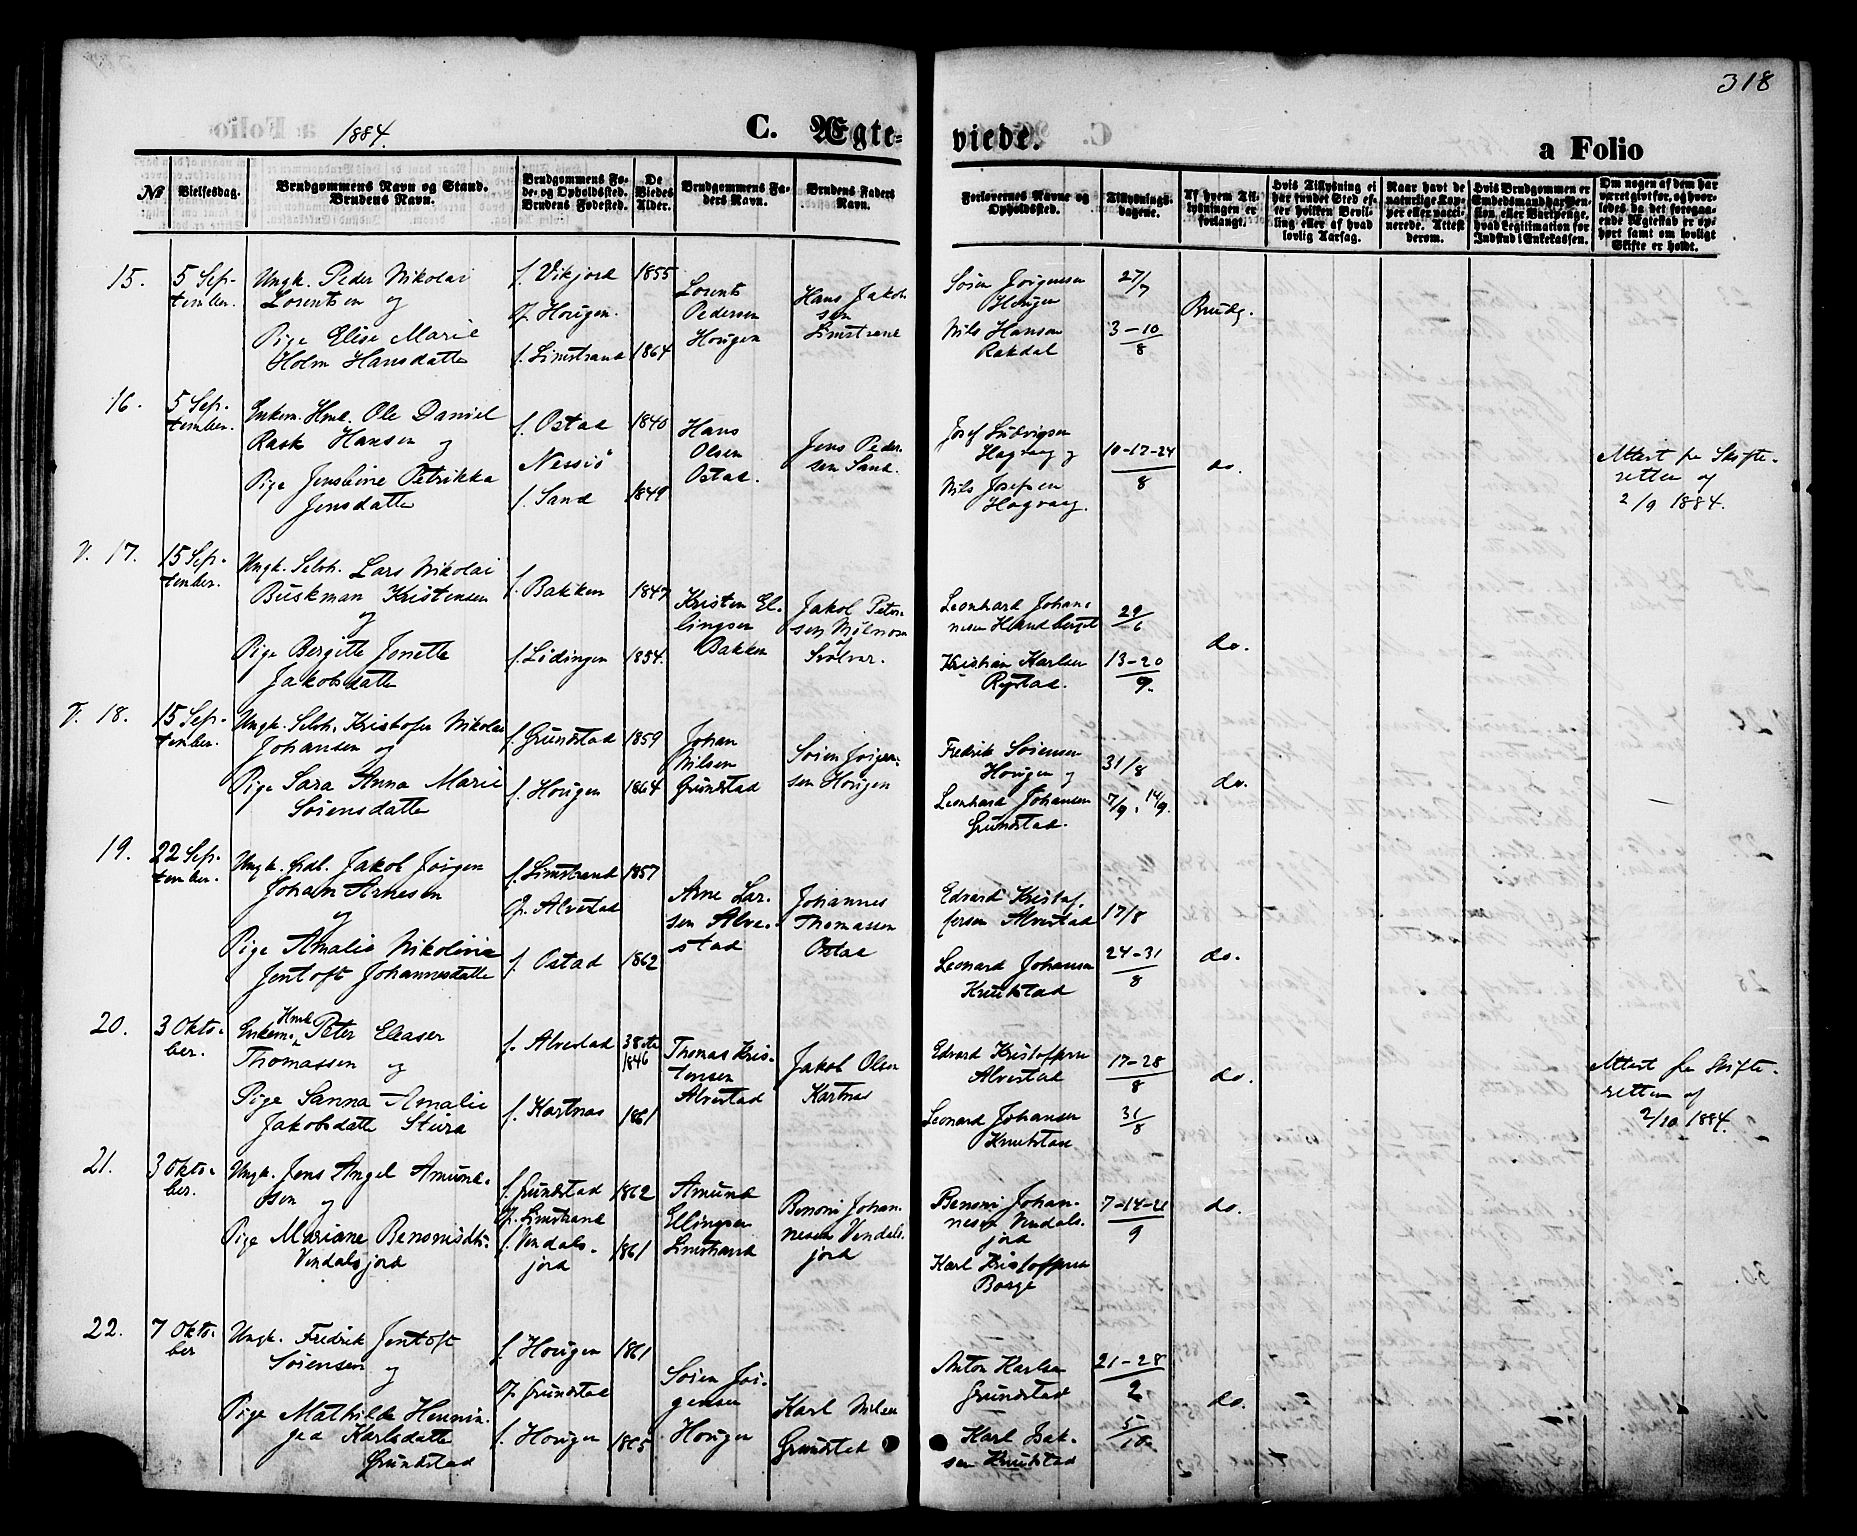 318
1884.
C. Ægte-
viede.
a Folio
No
Vielsesdag.
Brudgommens Navn og Stand.
Brudens Navn.
Brudgommens Fø-
de- og Opholdssted.
Brudens Fødested.
De
Viedes
Alder.
Brudgommens Fa-
ders Navn.
Brudens Faders
Navn.
Forlovernes Navne og
Opholdssted.
Tillysnings-
dagene.
Af hvem Til-
lysningen er
forlangt.
Hvis Tillysning ei
har fundet Sted ef-
ter hvilken Bevil-
ling eller af hvad
lovlig Aarsag.
Naar havt de
naturlige Kop-
per eller vacci-
nerede. Attest
derom.
Hvis Brudgommen er
Embedsmand har Pen-
sion, eller Vartpenge,
hvad Legitimation for
Indskud i Enkekassen.
Om nogen af dem har
været givt før, og hvor-
ledes, da det foregaa-
ende Ægteskab er op-
hørt samt om lovligt
Skifte er holdt.
15.
5 Sep-
tember.
Ungk. Peder Nikolai
Lorentsen og
Pige Elise Marie
Holm Hansdatte
f. Vikjord
Op. Hougen.
f. Limstrand
1855
1864
Lorents
Pedersen
Hougen
Hans Jakob
sen
Limstrand
Søren Jørgensen
Hougen
Nils Hansen
Rakdal
27/7
3-10
8
Brudg.
16.
5 Sep-
tember.
Enkem. Hmd. Ole Daniel
Rask Hansen og
Pige Jensine Petrikka
Jensdatte
f. Ostad
Nessiø
f. Sand
1840
1849
Hans
Olsen
Ostad.
Jens Peder-
sen Sand.
Josef Ludvigsen
Hagvaag og
Nils Josefsen
Hagvaag.
10-17-24
8
do.
Attest fra Skifte-
retten af
2/9 1884.
V. 17.
15 Sep-
tember.
Ungk. Selvh. Lars Nikolai
Buskman Kristensen
og
Pige Bergitte Jonette
Jakobsdatte
f. Bakken
f. Lødingen
1847
1854.
Kristen El-
lingsen
Bakken
Jakob Peter-
sen Molnosen
af
Svolvær.
Leonhard Johan-
nesen Handberget
Kristian Karlsen
Rystad.
29/6
13-20
9.
do.
V. 18.
15 Sep-
tember.
Ungk. Selvh. Kristofer Nikolai
Johansen og
Pige Sara Anna Marie
Sørensdatte
f. Grundstad
f. Hougen
1859
1864
Johan
Nilsen
Grundstad
Søren Jørgen-
sen Hougen
Fredrik Sørensen
Hougen og
Leonhard Johansen
Grundstad.
31/8
7/9, 14/9.
do.
19.
22 Sep-
tember.
Ungk. Gdb. Jakob Jørgen
Johan Arnesen
og
Pige Amalie Nikoline
Jentoft Johannesdatte
f. Limstrand
Op. Alvestad
f. Ostad
1857
1862
Arne Lar-
sen Alve-
stad
Johannes
Thomassen
Ostad
Edvard Kristof-
fersen Alvestad
Leonard Johansen
Knutstad
17/8
24-31
8
do.
20.
3 Okto-
ber.
Enkem. Hmd. Peter Eleaser
Thomassen og
Pige Sanna Amalie
Jakobsdatte Stura
f. Alvestad
f. Kartnas
1846
1861
Thomas Kris-
tensen
Alvestad
Jakob Olsen
Kartnas
Edvard Kristoffersen
Alvestad
Leonard Johansen
Knutstad
17-28
8
31/8
do.
Attest fra Skifte-
retten af
2/10 1884.
21.
3 Okto-
ber.
Ungk. Jens Angel Amund-
sen og
Pige Mariane Benonisdtr.
Vendalsjord
f. Grundstad
Op. Limstrand
f. Vendals-
jord
1862
1861
Amund
Ellingsen
Limstrand
Benoni Johan-
nesen Vendals-
jord
Benoni Johan-
nesen Vendals-
jord
Karl Kristoffersen
Borge
7-14-21
9
do.
22.
7 Okto-
ber
Ungk. Fredrik Jentoft
Sørensen og
Pige Mathilde Hennin-
gea Karlsdatte
Grundstad
f. Hougen
Op. Grundstad
f. Hougen
1861
1865
Søren Jør-
gensen
Hougen
Karl Nilsen
Grundstad
Anton Karlsen
Grundstad
Karl Isak-
sen Knutstad
21-28
2
5/10
do.